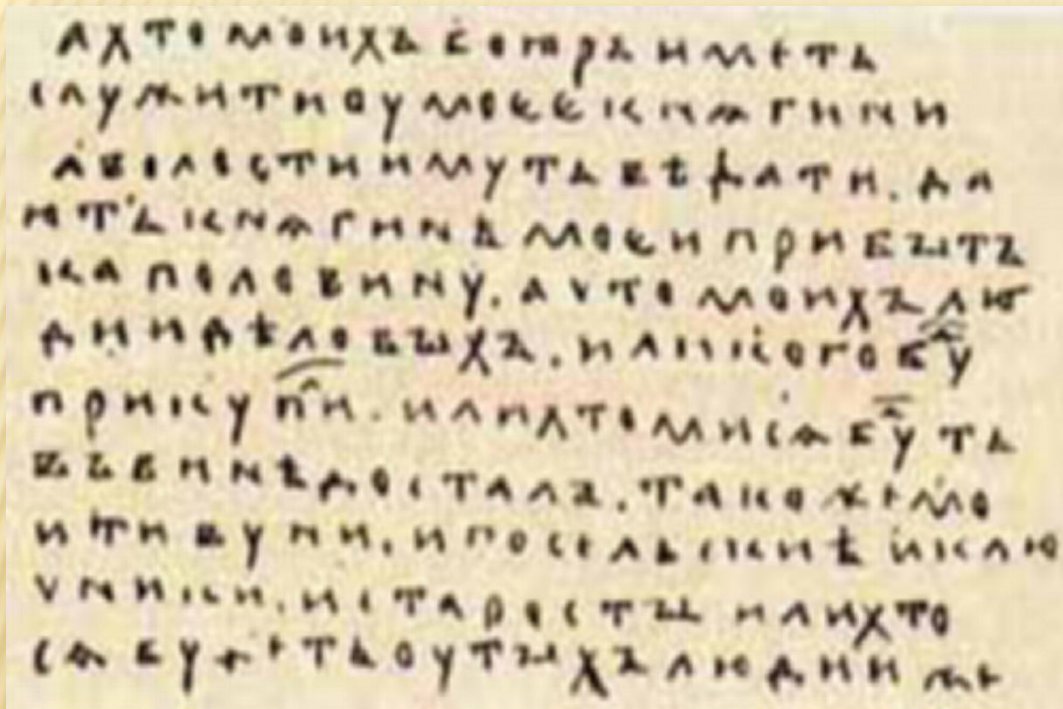 А ХТО МОИХЪ БОЯРЪ ИМЕТЬ
СЛУЖИТИ ОУ МОЕЕ КНѦГИНИ
А ВОЛОСТИ ИМУТЬ ВѢДАТИ. ДА
ИТЬ КНѦГИНѢ МОЕИ ПРИБЫТЪ
КА ПОЛОВИНУ. А ЧТО МОИХЪ ЛЮ
ДИИ ДѢЛОВЫХЪ. ИЛИ КОГО БУ
ПРИКУПИ. ИЛИ ХТО МИ СѦ БУТЬ
ВЪ ВИНѢ ДОСТАЛЪ. ТАКО ЖЕ МО
И ТИВУНИ. И ПОСЕЛЬСКИѢ И КЛЮ
ЧНИКИ. И СТАРОСТЫ ИЛИ ХТО
СѦ БУДЕТЬ ОУ ТЫХЪ ЛЮДИИ ЖЕ